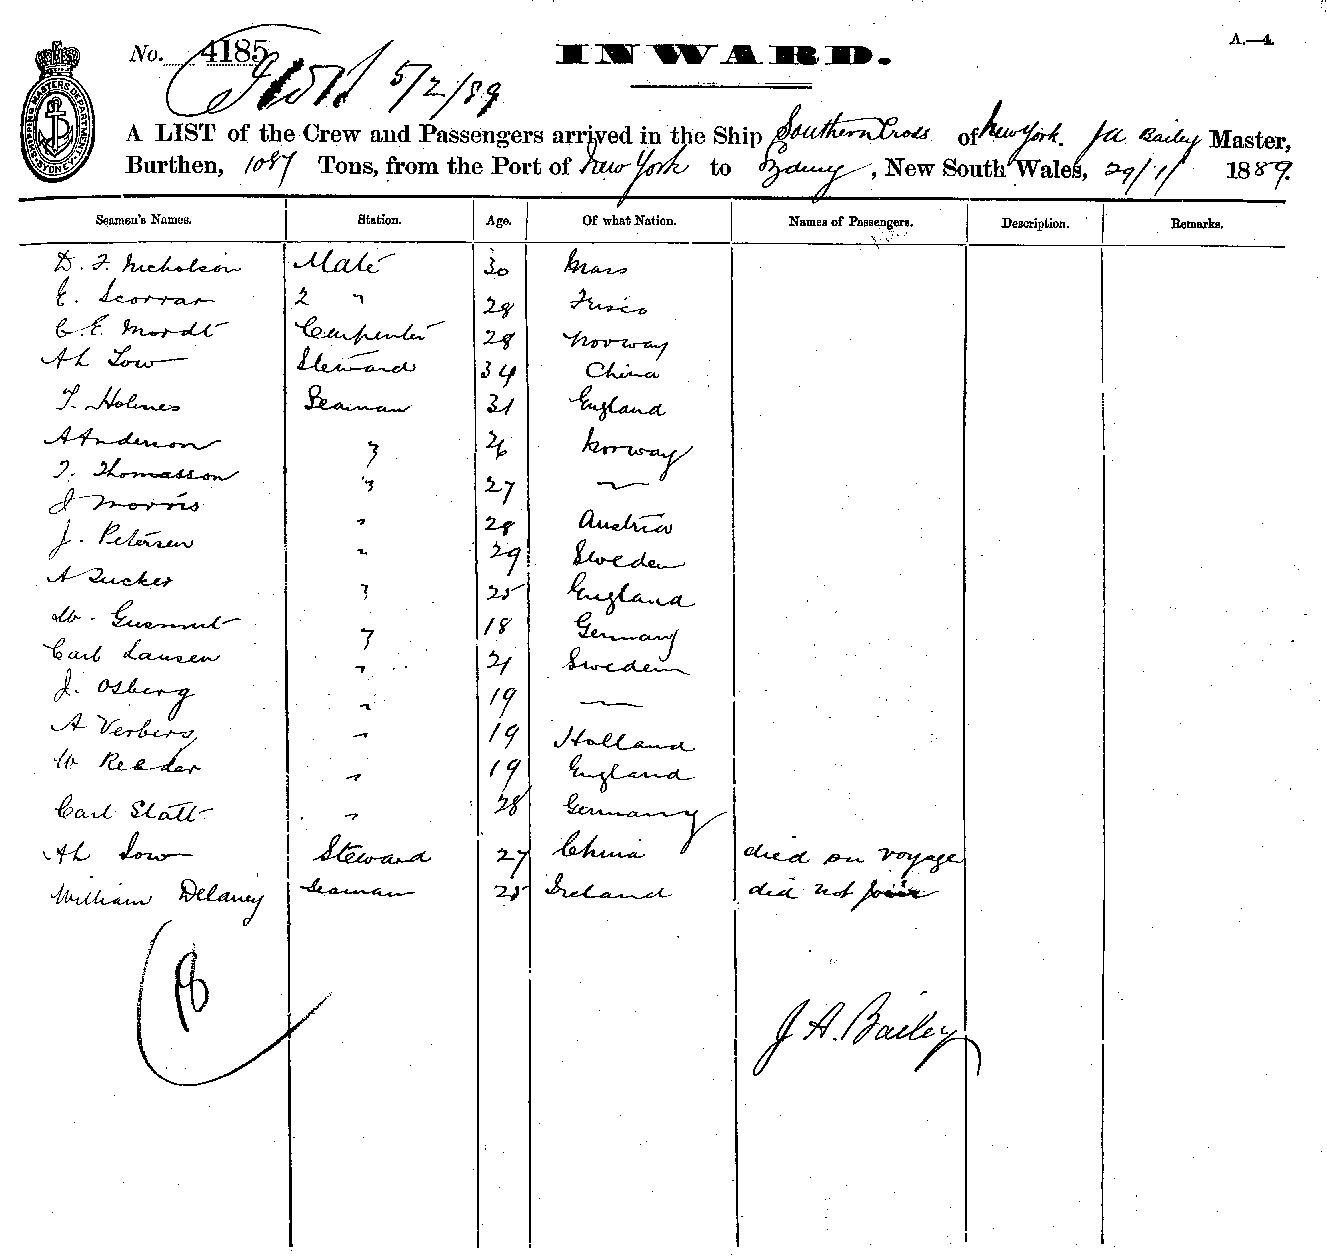 A.—4.
No. 4185 INWARD.
5/2/89
A LIST of the Crew and Passengers arrived in the Ship Southern Cross of New York. J A Bailey Master,
Burthen, 1087 Tons, from the Port of New York to Sydney, New South Wales, 29/1/ 1889.
SHIPPING MASTERS DEPARTMENT SYDNEY
Seamen's Names. Station. Age. Of what Nation. Names of Passengers. Description. Remarks.
D. F. Nicholson Mate 30 Mass
E. Scorrar 2 " 28 Frisco
C. E. Mordt Carpenter 28 Norway
Ah Low Steward 34 China
T. Holmes Seaman 31 England
A Anderson " 26 Norway
T. Thomasson " 27 —
J Morris " 28 Austria
J. Petersen " 29 Sweden
A Tucker " 25 England
W. " 18 Germany
Carl Lausen " 21 Sweden
J. Osberg " 19 —
A Verbers " 19 Holland
W Reeder " 19 England
Carl Statt " 28 Germany
Ah Sow Steward 27 China died on voyage
William Delaney Seaman 25 Ireland did not join
18
J. A. Bailey